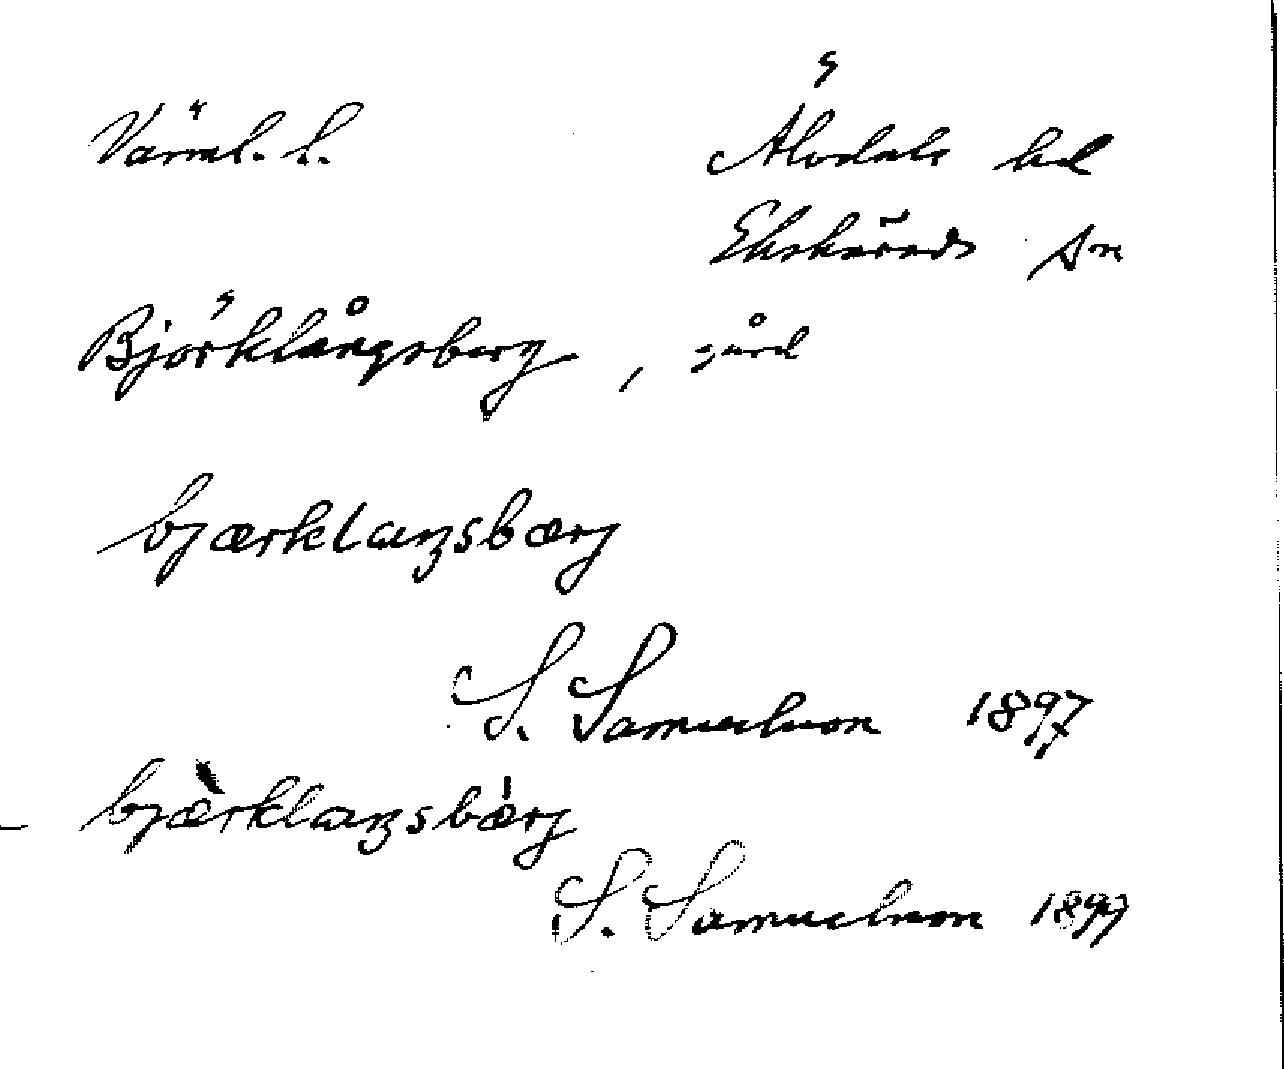 Värml. l.
Älvdals hd
Ekshärads sn
Björklångsberg, gård
bjærklaŋsbærj
S. Samuelsson 1897
bjæ̀rklaŋsbæ̍rj
S. Samuelsson 1897